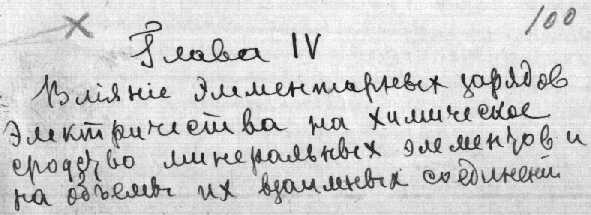 100
Глава IV
Влiянiе элементарных зарядов
электричества на химическое
сродство минеральных элементов и
на объемы их взаимных соединений